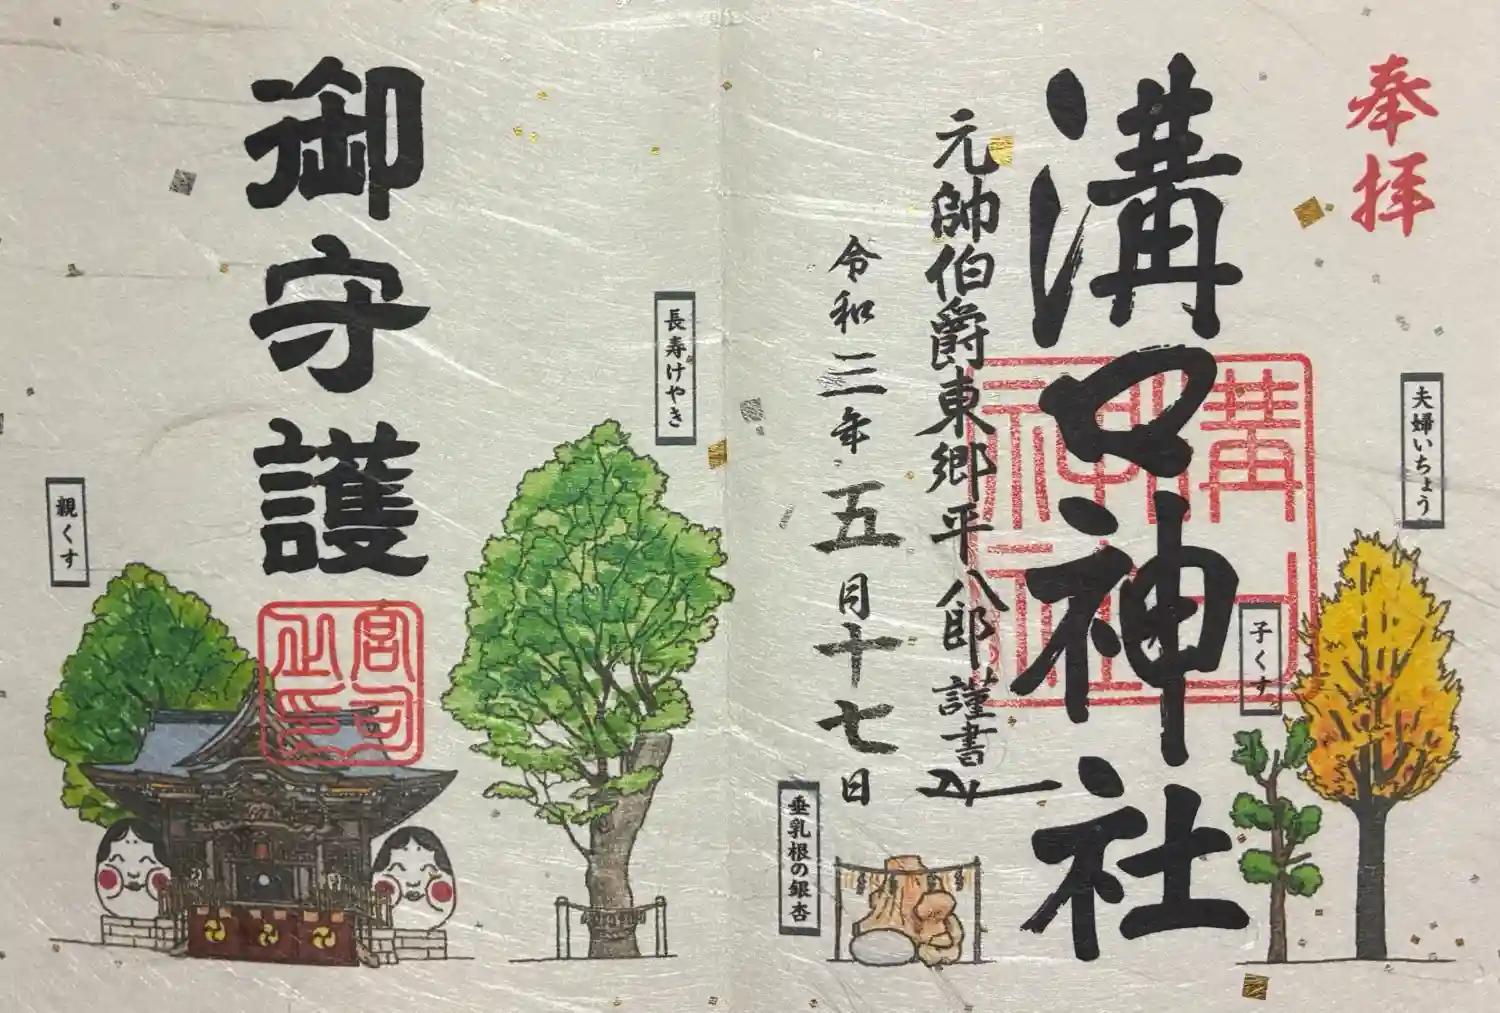 奉拝
夫婦いちょう
溝口神社
子くす
元帥伯爵東郷平八郎謹書
令和三年五月十七日
垂乳根の銀杏
長寿けやき
御守護
宮司之印
親くす